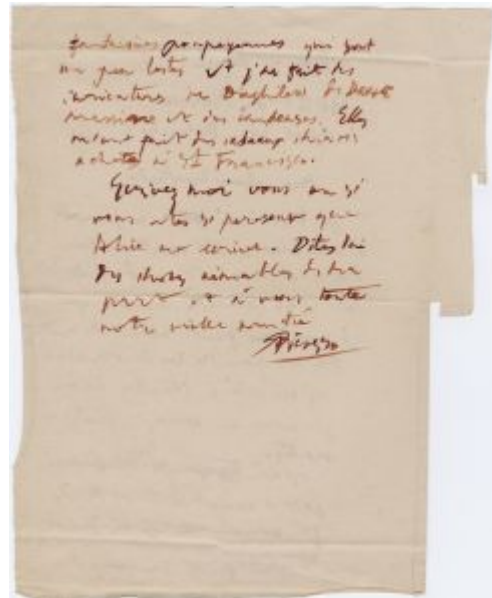 fantaisies pompeyennes qui sont
un peu lestes et j'ai fait des
de Diaghilew de
Massine et des danseuses. Elles
m'ont fait des cadeaux chinois
achetés à St Francisco.
Ecrivez moi vous ou si
vous etes si paresseux que
Alice me ecrive. Dites lui
des choses aimables de ma
part et à vous toute
notre vieille amitié
Picasso